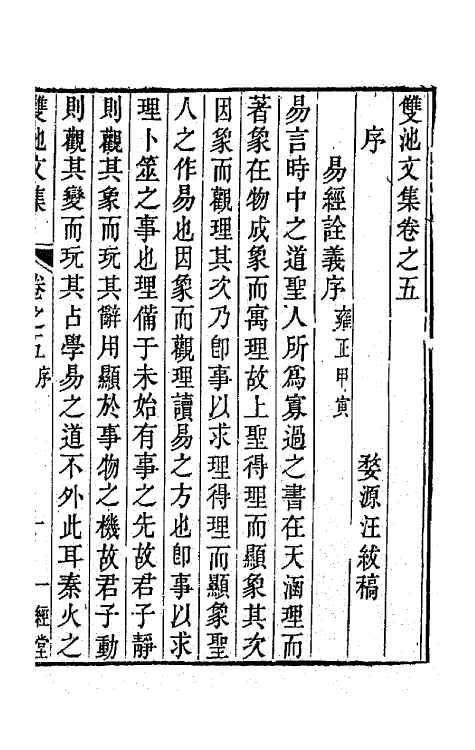 雙池文集卷之五
婺源汪紱稿
序
易經詮義序 雍正甲寅
易言時中之道聖人所爲寡過之書在天涵理而
著象在物成象而寓理故上聖得理而顯象其次
因象而觀理其次乃卽事以求理得理而顯象聖
人之作易也因象而觀理讀易之方也卽事以求
理卜筮之事也理備于未始有事之先故君子靜
則觀其象而玩其辭用顯於事物之機故君子動
則觀其變而玩其占學易之道不外此耳秦火之
雙池文集 卷之五序 一 一經堂